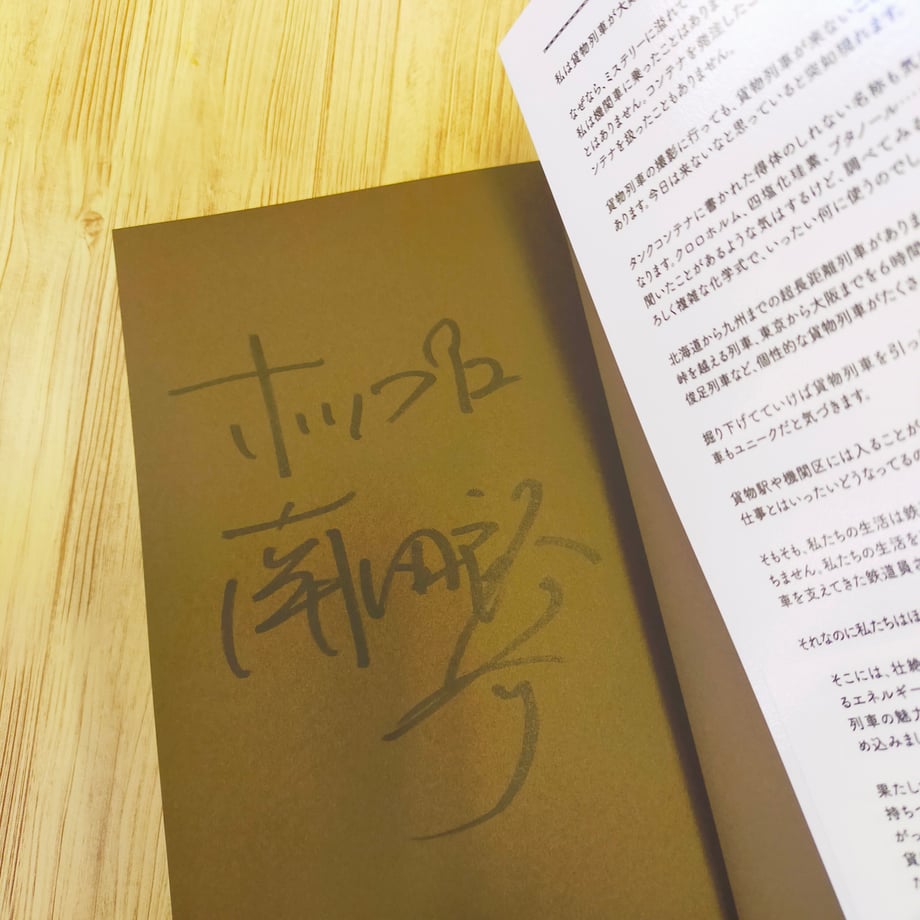 ホリプロ
南田裕介
私は貨物列車が大
なぜなら、ミステリーに溢れて
私は機関車に乗ったことはありま
とはありません。コンテナを発注したこ
ンテナを扱ったこともありません。
貨物列車の撮影に行っても、貨物列車が来ないこ
あります。今日は来ないなと思っていると突如現れます。
タンクコンテナに書かれた得体のしれない名称も気
なります。クロロホルム、四塩化珪素、ブタノール…
聞いたことがあるような気はするけど、調べてみ
ろしく複雑な化学式で、いったい何に使うのでし
北海道から九州までの超長距離列車があり
峠を越える列車、東京から大阪までを6時間
俊足列車など、個性的な貨物列車がたくさ
掘り下げてていけば貨物列車を引っ
車もユニークだと気づきます。
貨物駅や機関区には入ることが
仕事とはいったいどうなってるの
そもそも、私たちの生活は鉄
ちません。私たちの生活を
車を支えてきた鉄道員さ
それなのに私たちはほ
そこには、壮絶
るエネルギー
列車の魅力
め込みまし
果たし
持ち
がっ
貨